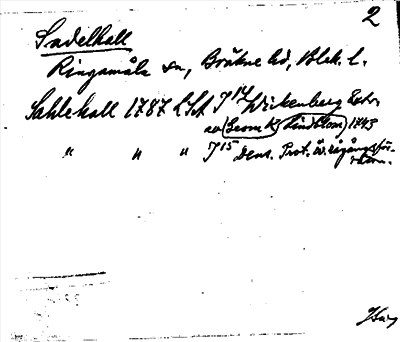 2
Sadelhall
Ringamåla sn, Bräkne hd, Blek. l.
Sahlehall 1787 LSA J14 Wickenberg Extr.
av (Geom K) (Lindblom) 1743
" " " J15 Dens. Prot. öv. rågångsför-